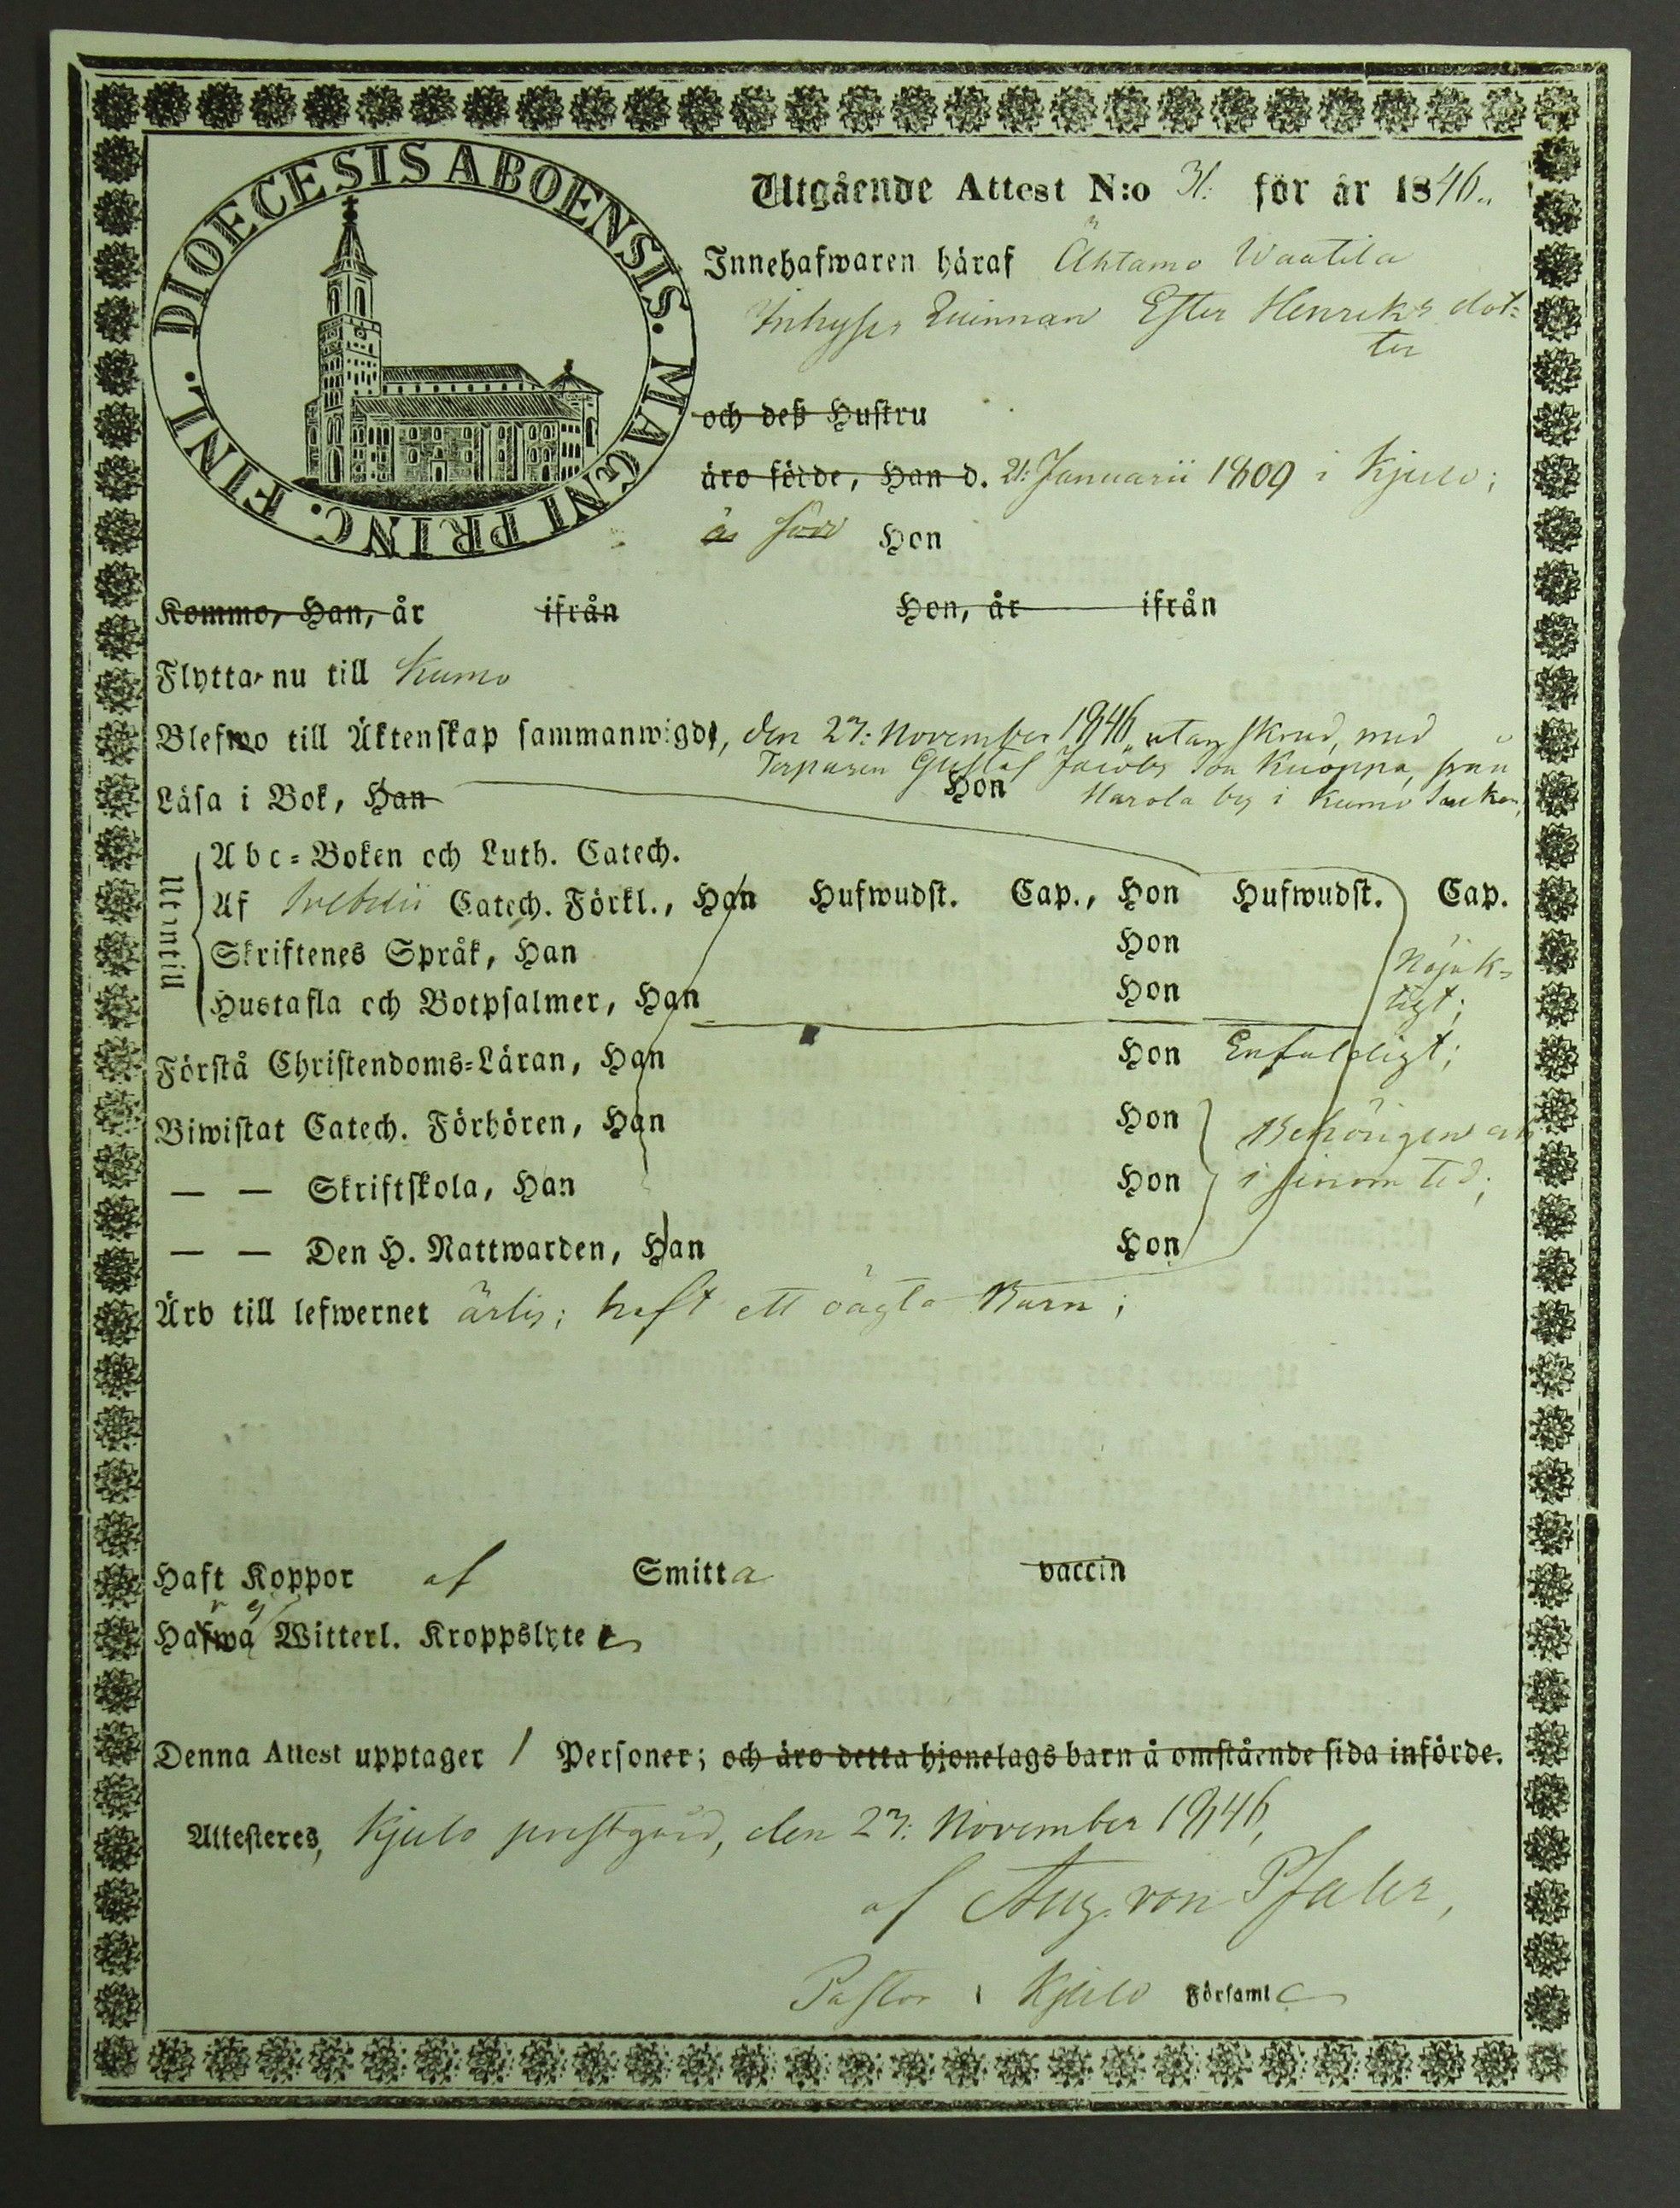 DIOECESIS ABOENSIS. MAGNI PRINC. FINL.
Utgående Attest N:o 31. för år 1846..
Innehafwaren häraf Ähtamo Waatila
Inhyses Qvinnan Ester Henriks dot=
ter
och deß Hustru
äro födde, Han d. 21: Januarii 1809 i Kjulo;
är född Hon
Kommo, Han, år ifrån Hon, år ifrån
Flytta nu till Kumo
Blefwo till Äktenskap sammanwigde, den 27: November 1846, utan skrud, med
Torparen Gustaf Jacobs Son Knoppa, från
Läsa i Bok, Han Hon Harola by i Kumo Socken,
Utantill
Abc=Boken och Luth. Catech.
Af Svebelii Catech. Förkl., Han Hufwudst. Cap., Hon Hufwudst. Cap.
Skriftenes Språk, Han Hon Nöjak=
Hustafla och Botpsalmer, Han Hon tigt;
Förstå Christendoms=Läran, Han Hon Enfaldigt;
Biwistat Catech. Förhören, Han Hon Behörigen och
— — Skriftskola, Han Hon i sinom tid;
— — Den H. Nattwarden, Han Hon
Äro till lefwernet ärlig; haft ett oägta Barn;
Haft Koppor af Smitta vaccin
Hafwa ej Witterl. Kroppslyte
Denna Attest upptager 1 Personer; och äro detta hjonelags barn å omstående sida införde.
Attesteres, Kjulo prestgård, den 27: November 1846,
af Aug. von Pfaler,
Pastor i Kjulo Församl